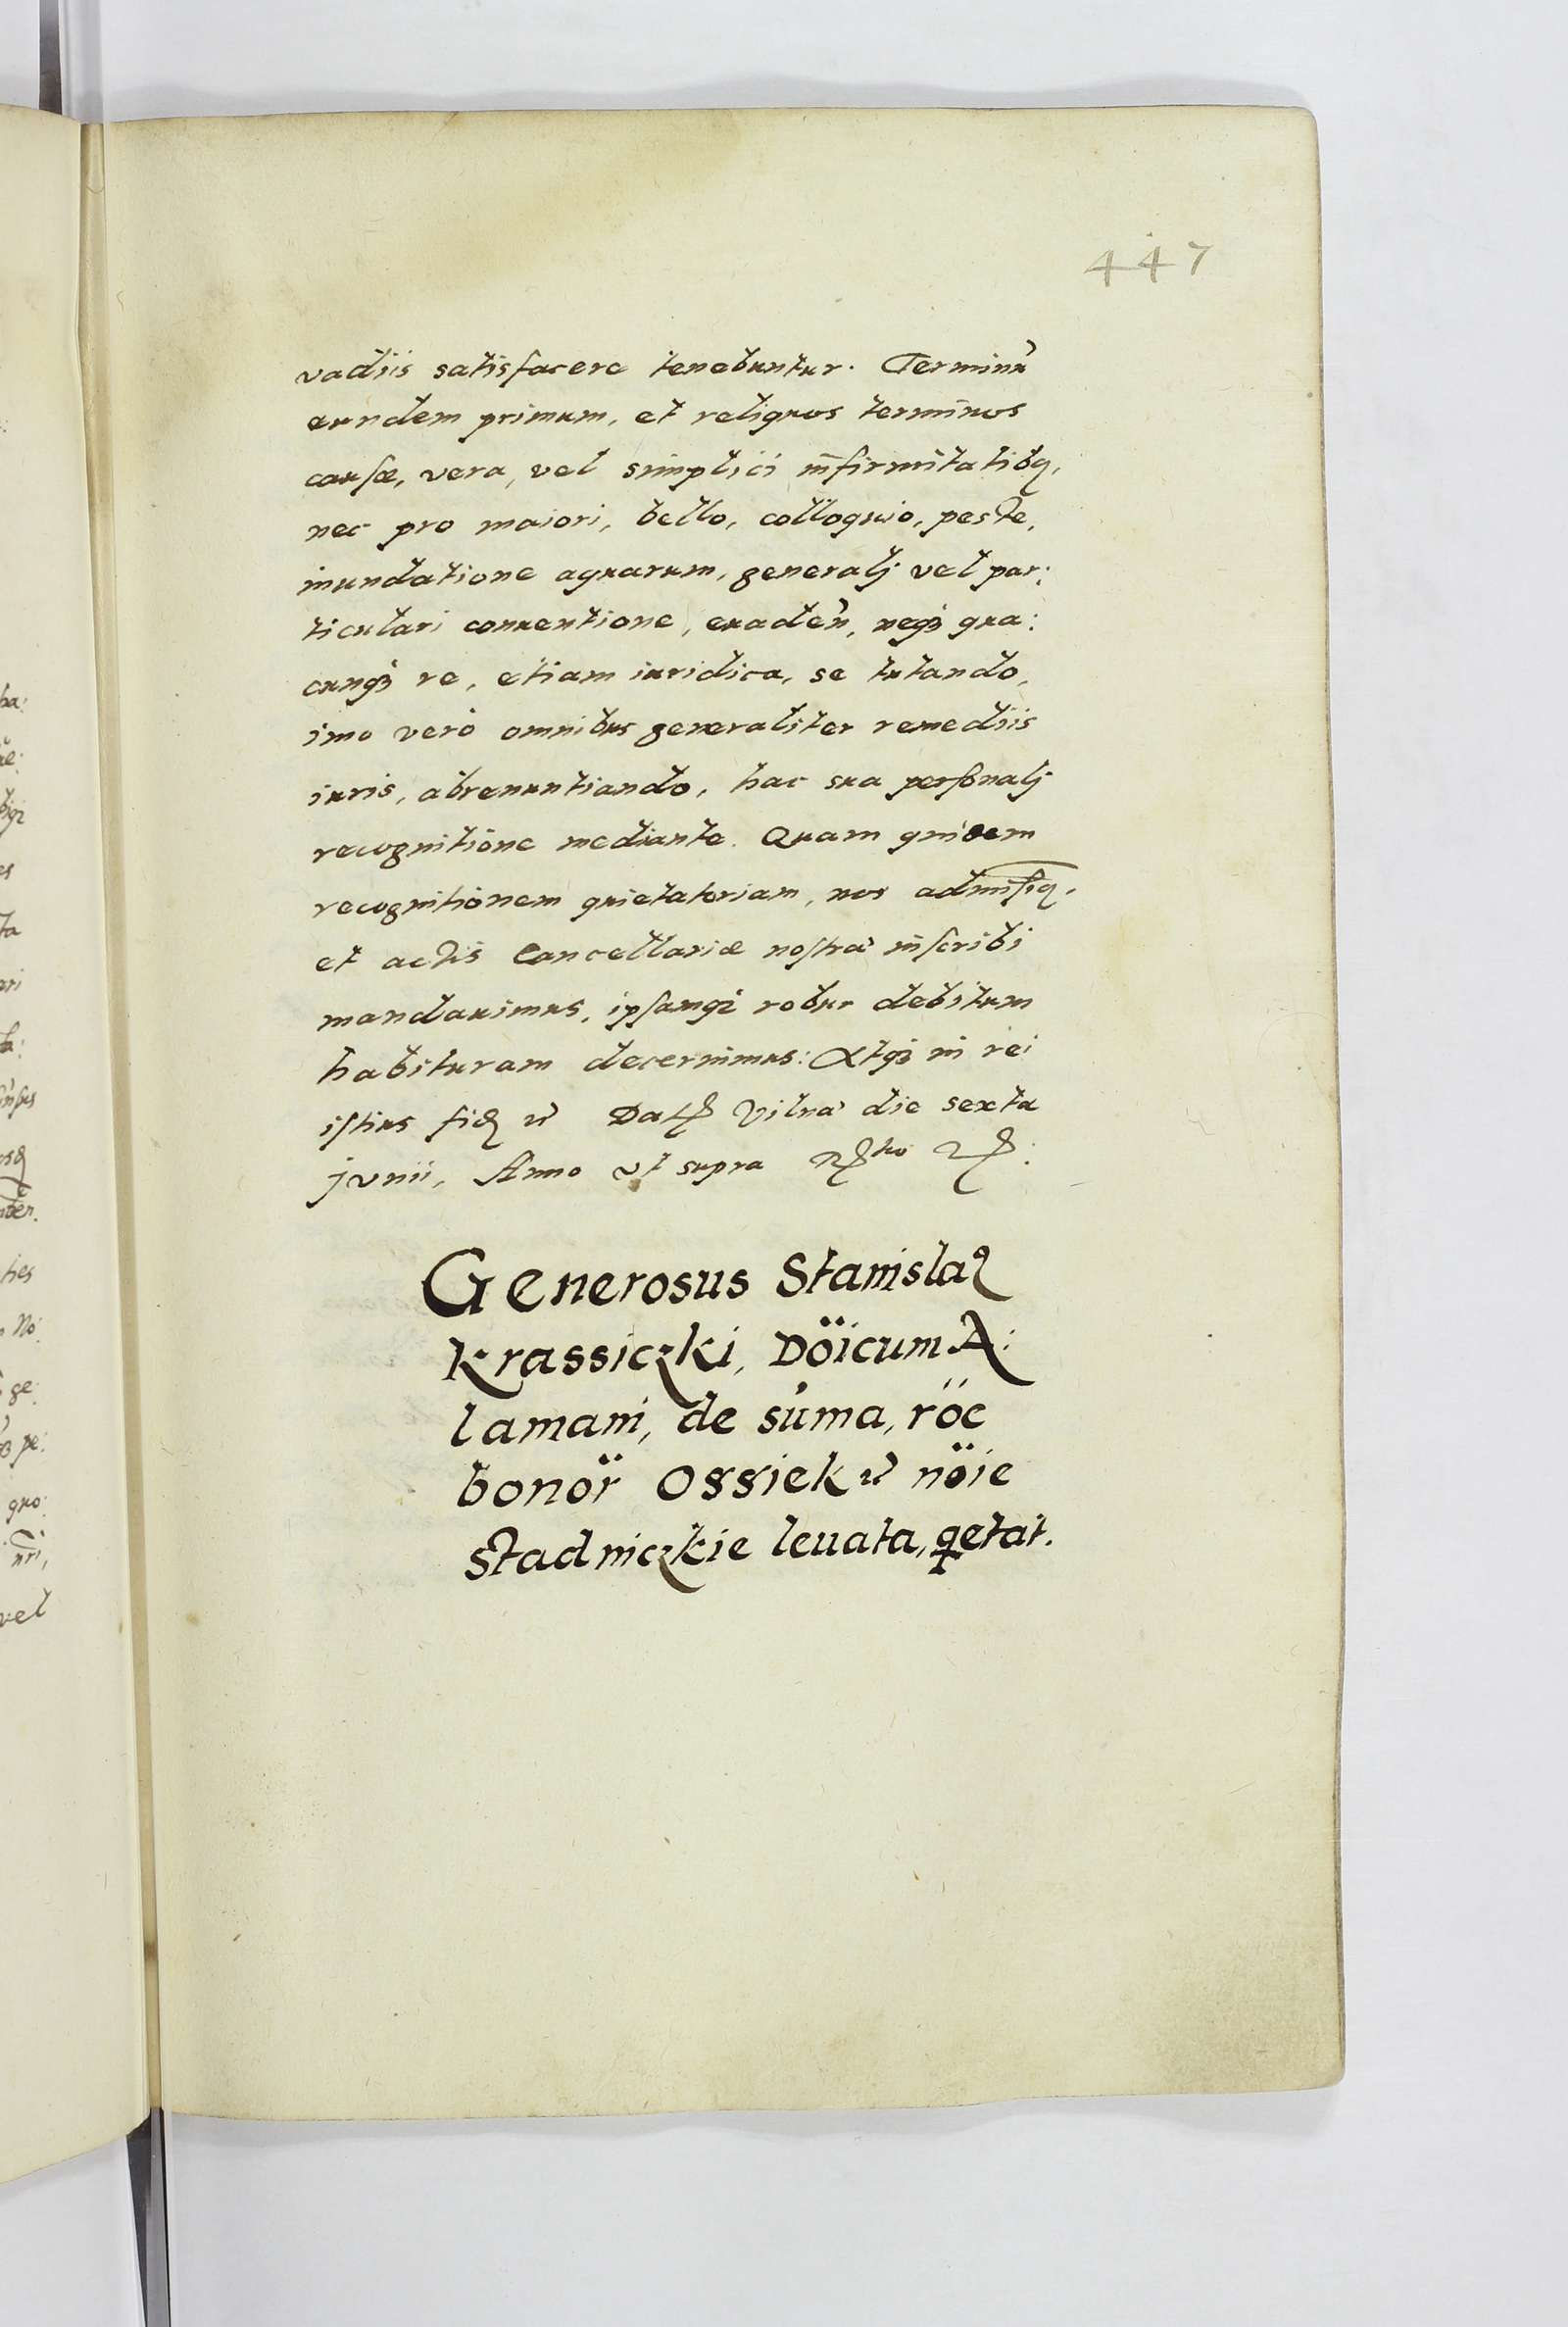 447
vadiis satisfacere tenebuntur. Terminũ
eundem primum, et reliquos terminos
causæ, vera, vel simplici infirmitatibꝫ,
nec pro maiori, bello, colloquio, peste,
inundatione aquarum, generalj vel par:
ticulari conuentione, euadeñ, neqꝫ qua:
cunqꝫ re, etiam iuridica, se tutando,
imo verò omnibus generaliter remediis
iuris, abrenuntiando, hac sua personalj
recognitione mediante. Quam quidem
recognitionem quietatoriam, nos admisiꝫ,
et actis Cancellariæ nostrà inscribi
mandauimus, ipsamqꝫ robur debitum
habituram decernimus: Atqꝫ in rei
istius fiđ Datꝫ Vilnà die sexta
junii, Anno vt supra
Generosus Stanislaꝰ
Krassiczki, Döicum A:
lamani, de sũma, röe
bonör Ossiek nöie
Stadniczkie leuata, qetat.